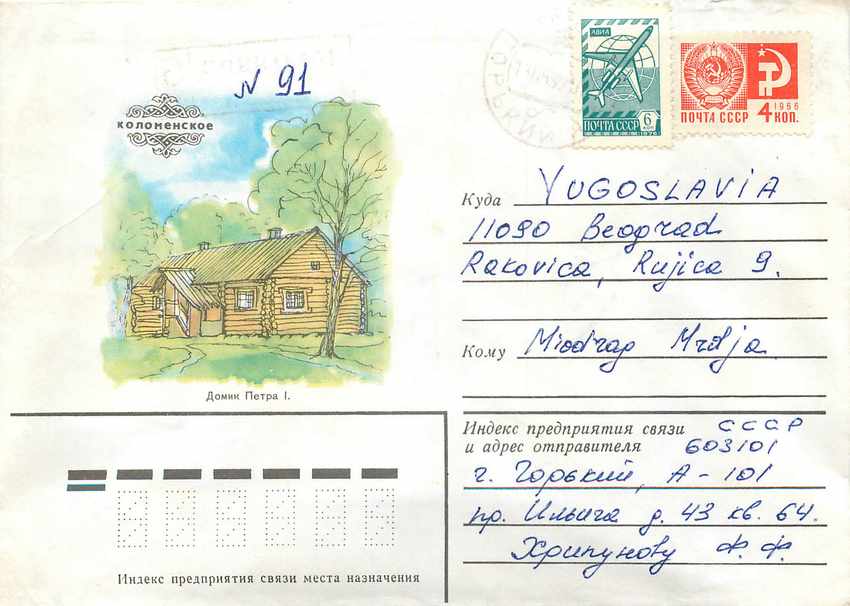 N 91
КОЛОМЕНСКОЕ
Домик Петра I.
АВИА
6
КОП
ПОЧТА СССР
1976
1966
4 КОП.
ПОЧТА СССР
Куда YUGOSLAVIA
11090 Beograd
Rakovica, Rujica 9.
Кому Miodrag Mrdja
Индекс предприятия связи СССР
и адрес отправителя 603101
г. Горький, А-101
пр. Ильича д. 43 кв. 64.
Хрипунову Ф. Ф.
Индекс предприятия связи места назначения